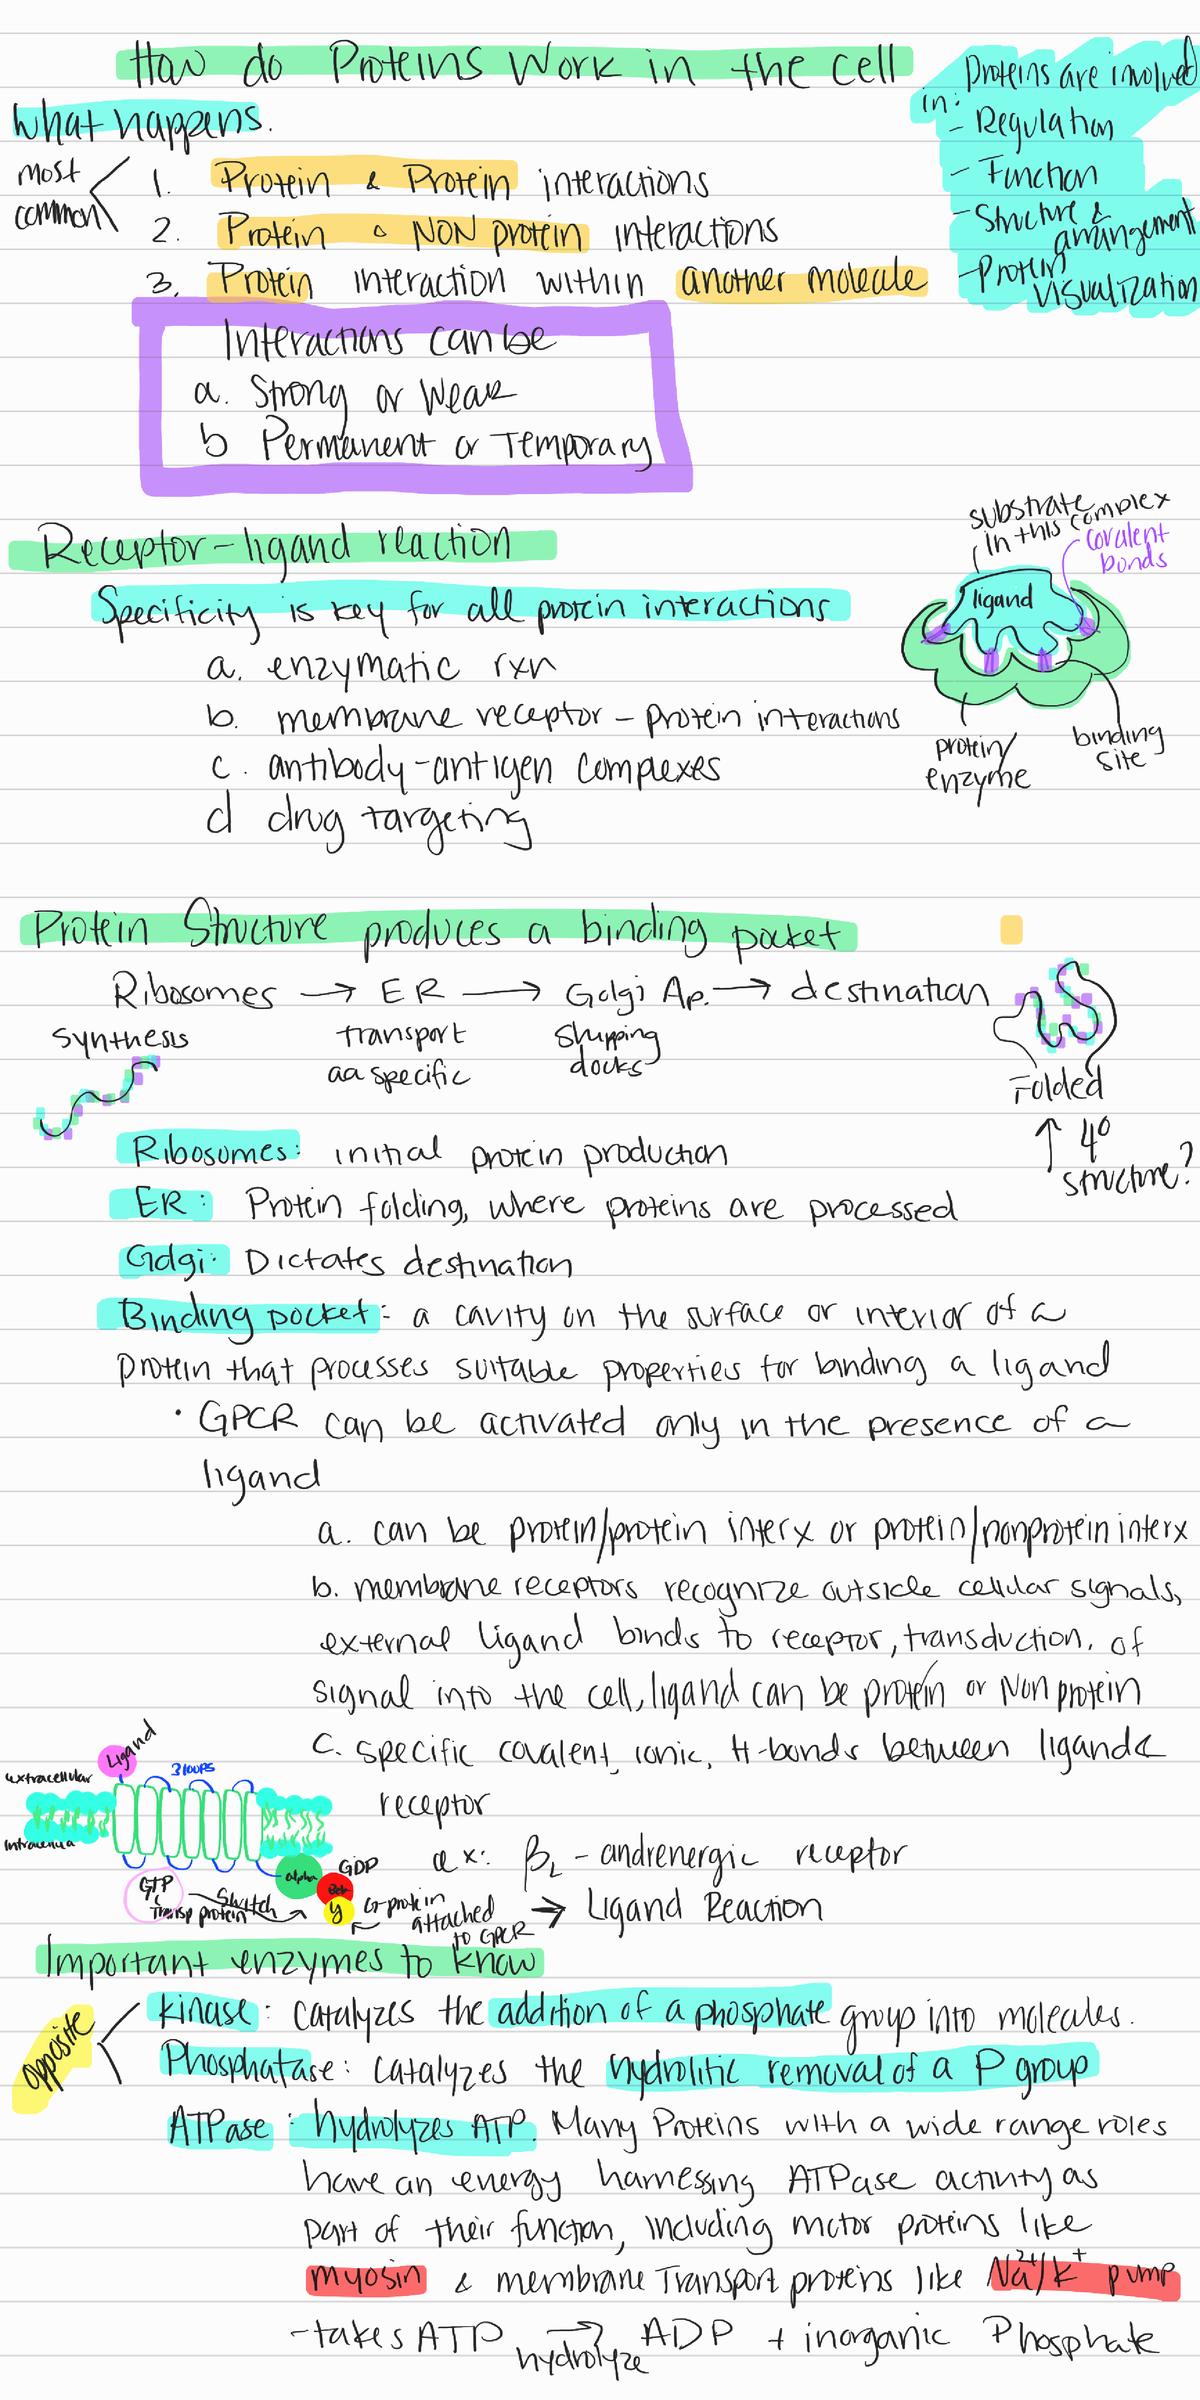 How do Proteins Work in the cell
Proteins are involved
in:
- Regulation
- Function
- Structure &
arrangement
- Protein
visualization
what happens.
most
common
1. Protein & Protein interactions
2. Protein & NON protein interactions
3. Protein interaction within another molecule
Interactions can be
a. Strong or Weak
b Permanent or Temporary
Receptor-ligand reaction
Specificity is key for all protein interactions
a. enzymatic rxn
b. membrane receptor - protein interactions
c. antibody-antigen complexes
d drug targeting
substrate
in this complex
covalent
bonds
ligand
protein/
enzyme
binding
site
Protein Structure produces a binding pocket
Ribosomes → ER → Golgi Ap. → destination
synthesis
transport
aa specific
shipping
docks
Folded
↑ 4°
structure?
Ribosomes: initial protein production
ER: Protein folding, where proteins are processed
Golgi: Dictates destination
Binding pocket: a cavity on the surface or interior of a
protein that processes suitable properties for binding a ligand
• GPCR can be activated only in the presence of a
ligand
a. can be protein/protein interx or protein/nonprotein interx
b. membrane receptors recognize outside cellular signals,
external ligand binds to receptor, transduction. of
signal into the cell, ligand can be protein or Non protein
c. specific covalent, ionic, H-bonds between ligand &
receptor
ex: β2 - andrenergic receptor
→ Ligand Reaction
Ligand
extracellular
3 loops
alpha
GDP
GTP
Transp protein
switch
γ
G-protein
attached
to GPCR
Important enzymes to know
opposite
kinase: catalyzes the addition of a phosphate group into molecules.
Phosphatase: catalyzes the hydrolitic removal of a P group
ATPase: hydrolyzes ATP. Many Proteins with a wide range roles
have an energy harnessing ATPase activity as
part of their function, including motor proteins like
myosin & membrane Transport proteins like Na²⁺/K⁺ pump
- takes ATP → ADP + inorganic Phosphate
hydrolyze